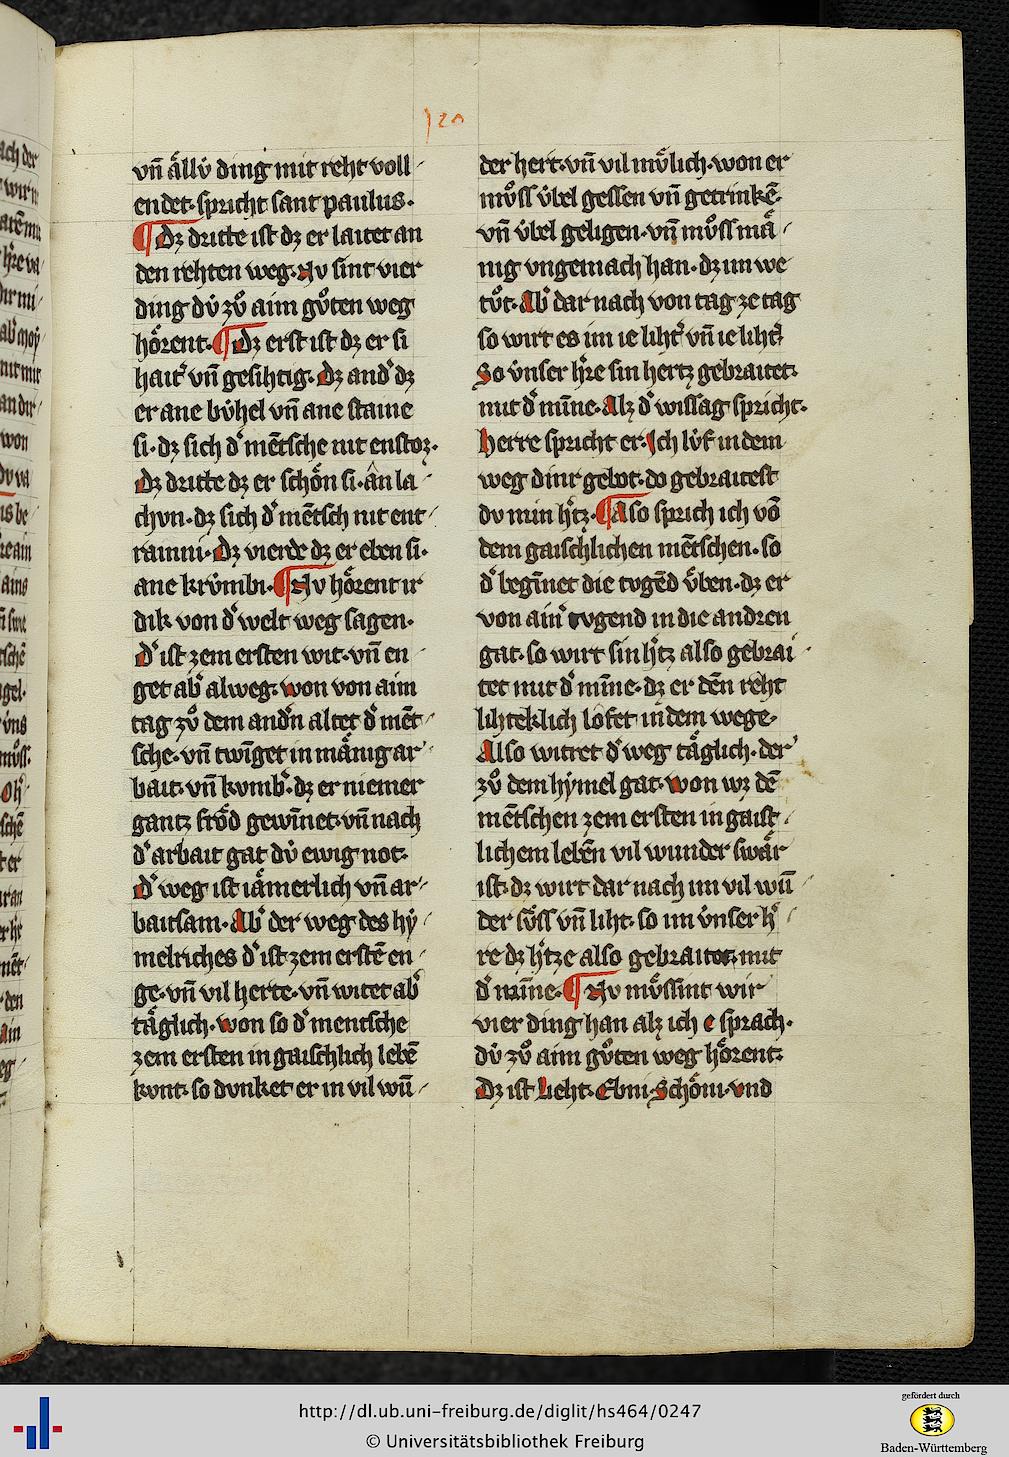 120
vn̄ ällv́ ding mit reht voll
endet. spricht sant paulus.
¶ Dz dritte ist dz er laitet an
den rehten weg. Nv sint vier
ding dv́ zů aim gůten weg
hörent. ¶ Dz erst ist dz er si
hait' vn̄ gesihtig. Dz and' dz
er ane bv́hel vn̄ ane staine
si. dz sich d' mētsche nit enstoz.
Dz dritte dz er schön si. ân la
chvn. dz sich d' mētsch nit ent
rainni. Dz vierde dz er eben si.
ane krv́mbi. ¶ Nv hörent ir
dik von d' welt weg sagen.
D' ist zem ersten wit. vn̄ en
get ab' alweg. won von aim
tag zů dem and'n altet d' mēt
sche. vn̄ twīget in mänig ar
bait. vn̄ kvmb'. dz er niemer
gantz fröd gewīnet. vn̄ nach
d' arbait gat dv́ ewig not.
D' weg ist iämerlich vn̄ ar
baitsam. Ab' der weg des hy
melriches d' ist zem erstē en
ge. vn̄ vil herte. vn̄ witet ab'
täglich. won so d' mentsche
zem ersten in gaischlich lebē
kvnt. so dvnket er in vil wū
der hert. vn̄ vil mv́lich. won er
můss v́bel gessen vn̄ getrinkē.
vn̄ v́bel geligen. vn̄ můss mä
nig vngemach han. dz im we
tůt. Ab' dar nach von tag ze tag
so wirt es im ie liht' vn̄ ie liht'
So v́nser h're sin hertz gebraitet.
mit d' mīne. Alz d' wissag spricht.
Herre spricht er. Ich lv́f in dem
weg dinr gebot. do gebraitest
dv min h'tz. ¶ Aso sprich ich vō
dem gaischlichen mētschen. so
d' begīnet die tvgēd v́ben. dz er
von ain' tvgend in die andren
gat. so wirt sin h'tz also gebrai
tet mit d' mīne. dz er dēn reht
lihteklich lofet in dem wege.
Also witret d' weg täglich. der
zů dem hymel gat. won wz dē
mētschen zem ersten in gaist
lichem lebēn vil wunder swär
ist. dz wirt dar nach im vil wū
der sůss vn̄ liht. so im v́nser h'
re dz h'tze also gebraitet mit
d' mīne. ¶ Nv můssint wir
vier ding han alz ich e sprach.
dv́ zů aim gůten weg hörent.
Dz ist Lieht. Ebni. Schöni. vnd
http://dl.ub.uni-freiburg.de/diglit/hs464/0247
© Universitätsbibliothek Freiburg
gefördert durch
Baden-Württemberg